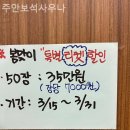 주안보석사우나
※ 봄맞이 "특별티켓"할인
50장 : 35만원
(장당 7,000원)
기간 : 3/15 ~ 3/31